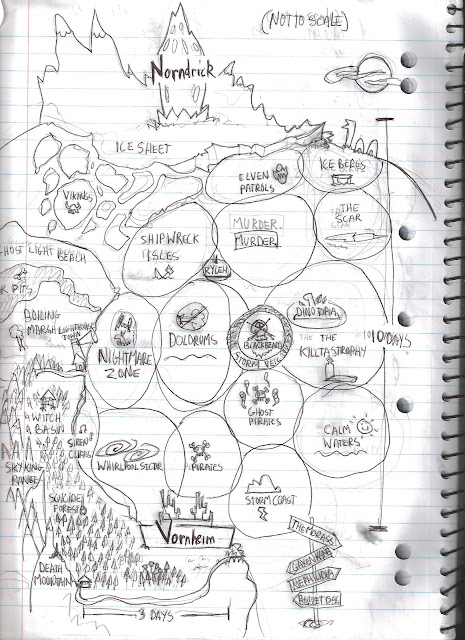 (NOT TO SCALE)
Norndrick
ICE SHEET
ELVEN
PATROLS
ICE BERGS
VIKINGS
MURDER.
MURDER.
THE
SCAR
SHIPWRECK
ISLES
GHOST LIGHT BEACH
RYLEH
R PITS
BOILING
MARSH
LIGHTHOUSE
TOWN
DINOTOPIA
NIGHTMARE
ZONE
DOLDRUMS
BLACKBEARD
STORM VEIL
THE THE
KILLTASTROPHY
10 DAYS
GHOST
PIRATES
WITCH
BASIN
SIREN
CLIFFS
CALM
WATERS
SKY KING
RANGE
WHIRLPOOL SECTOR
PIRATES
SUICIDE
FOREST
STORM COAST
Vornheim
THE MORASS
DEATH
MOUNTAIN
3 DAYS